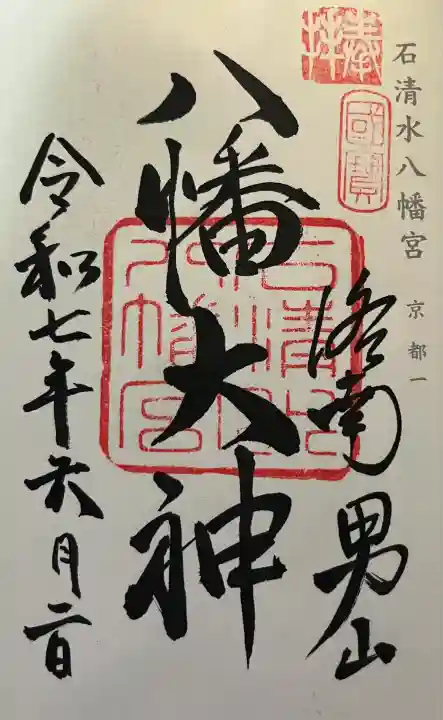 奉拝
石清水八幡宮 京都一
國寶
洛南 男山
八幡大神
石清水八幡宮
令和七年六月二日